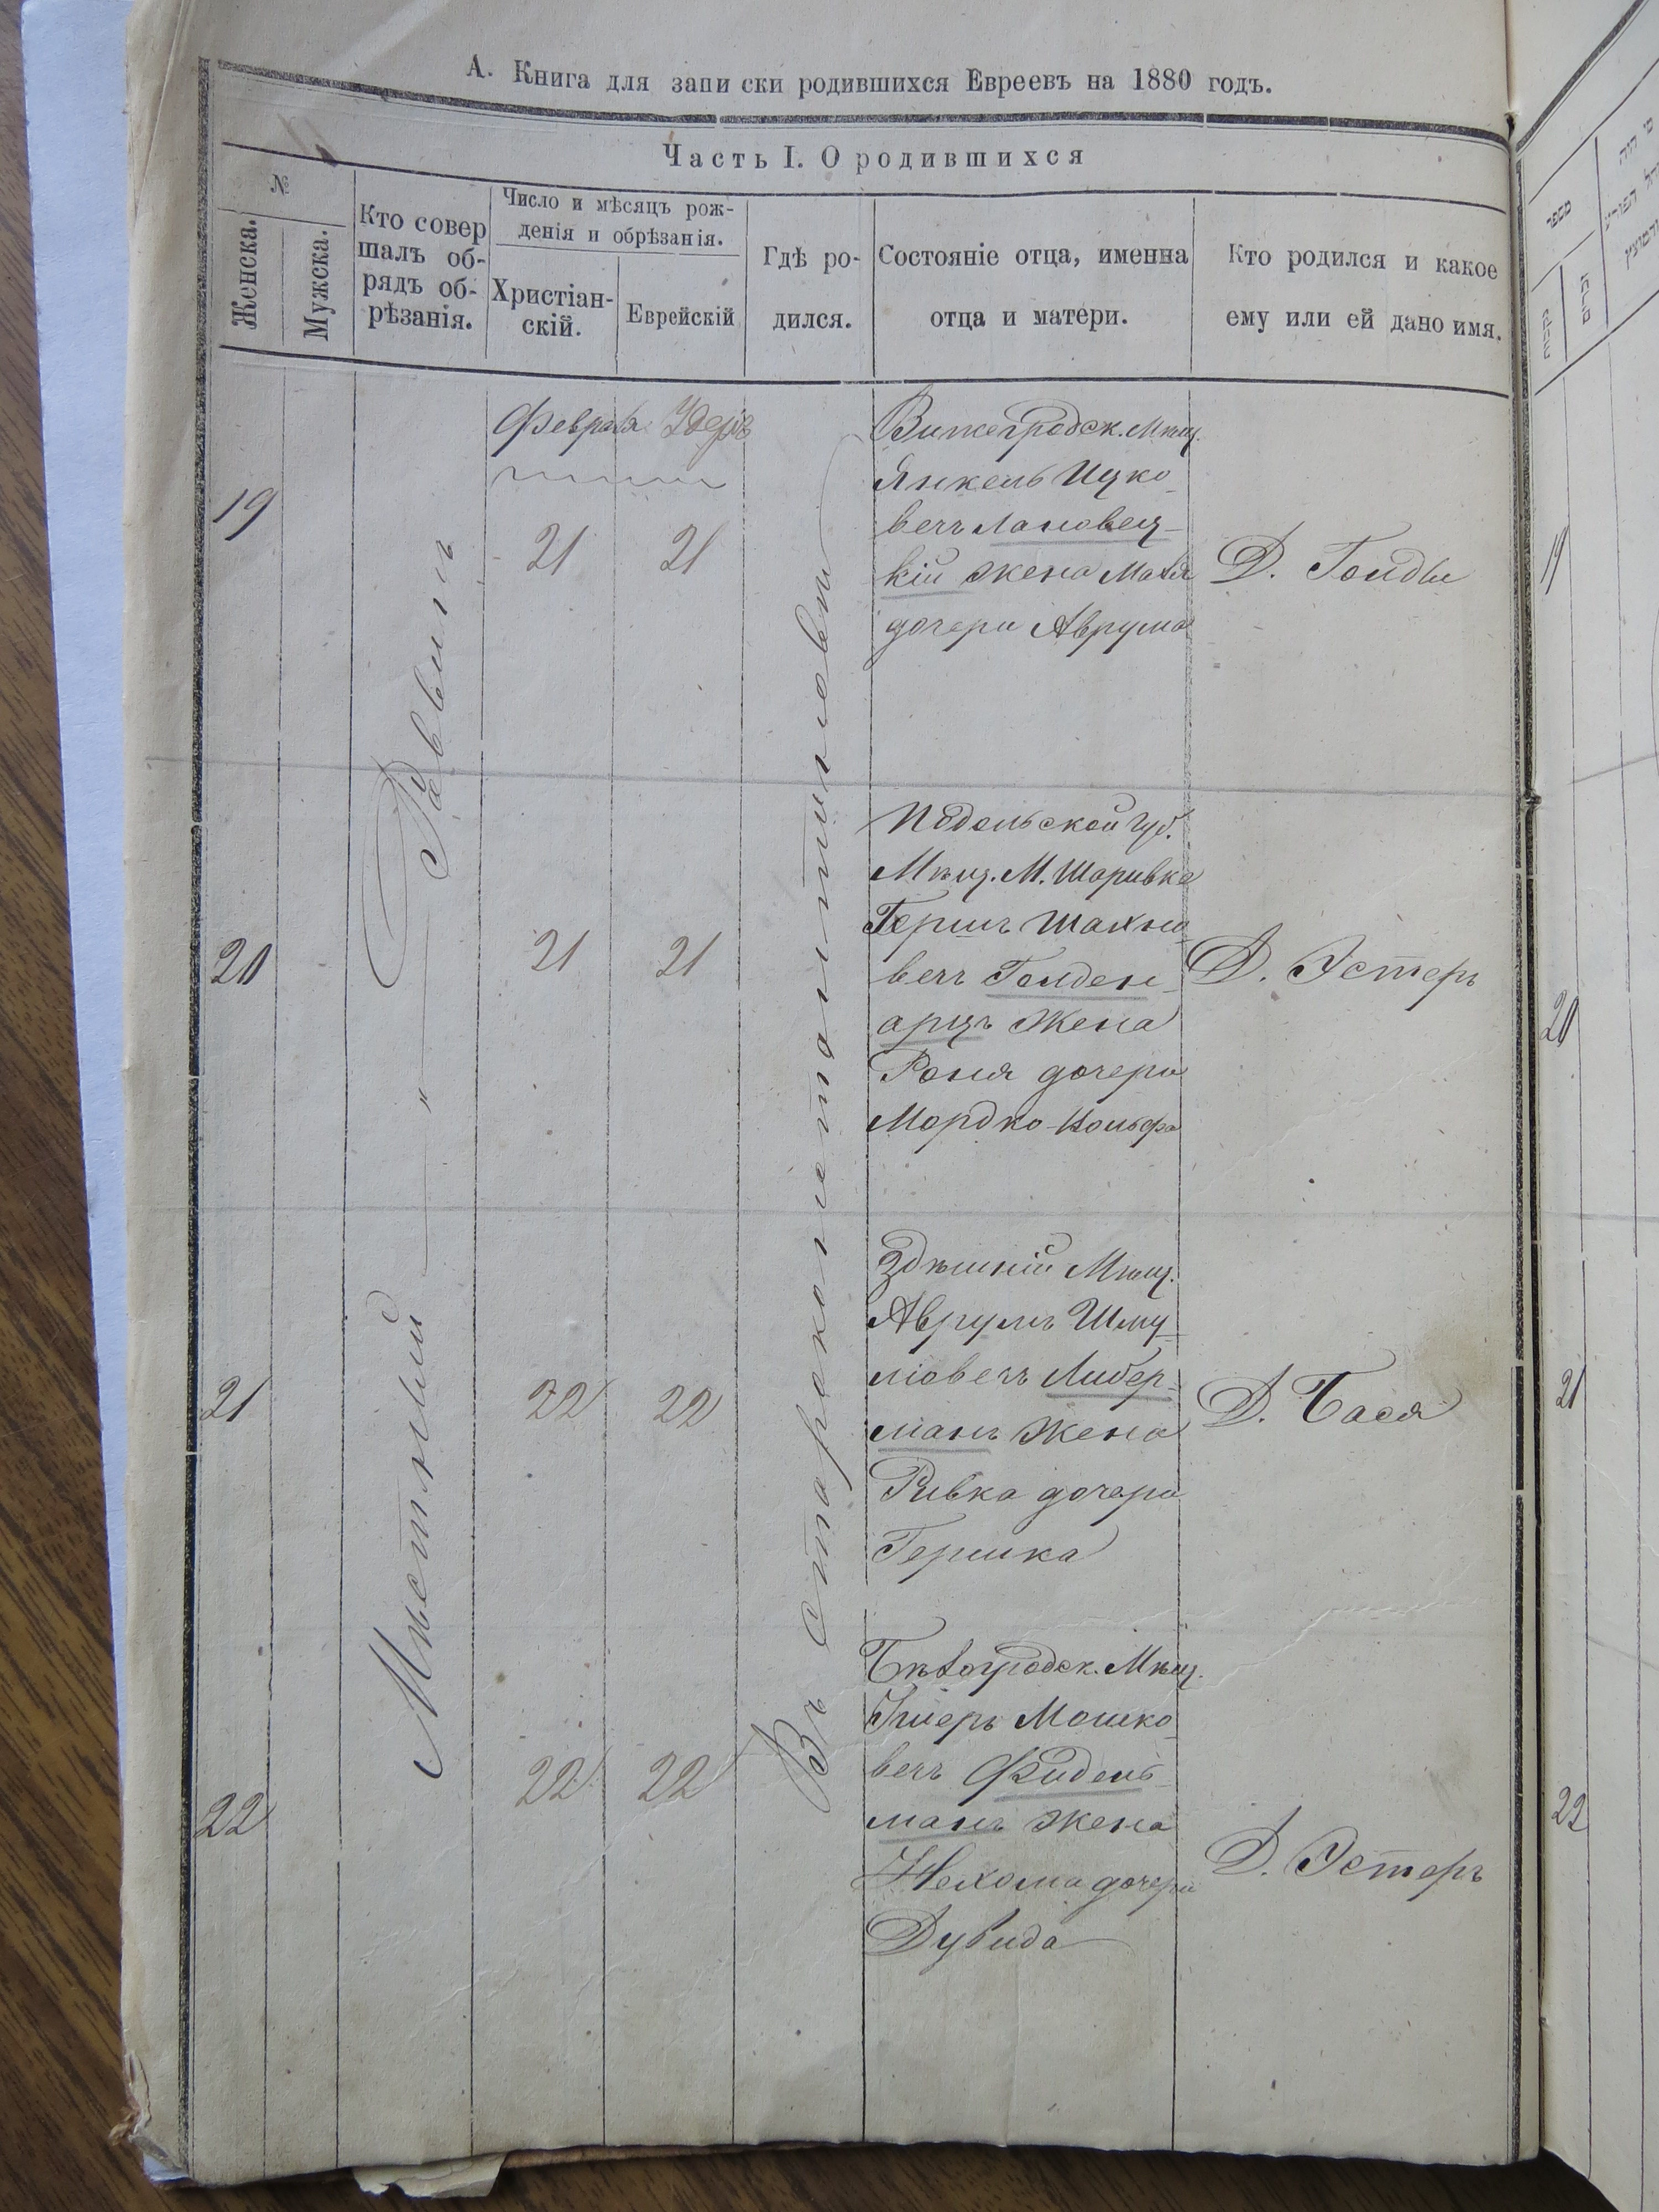 А. Книга для запи ски родившихся Евреевъ на 1880 годъ.
Часть I. О родившихся
№
Женска.
Мужска.
Кто совер
шалъ об-
рядъ об-
рѣзанія.
Число и мѣсяцъ рож-
денія и обрѣзанія.
Христіан-
скій.
Еврейскій
Гдѣ ро-
дился.
Состояніе отца, именна
отца и матери.
Кто родился и какое
ему или ей дано имя.
Мѣстный — „ — Раввинъ
Въ Староконстантиновѣ
Февраля
19
21
21
Вижегродск. Мѣщ.
Янкель Ицко-
вечъ Лановец-
кій жена Маля
дочери Аврума
Д. Гольды
20
21
21
Подольской губ.
Мѣщ. М. Шаривка
Гершъ Шахно-
вечъ Голден-
арцъ Жена
Роня дочери
Мордко-Вольфа
Д. Эстеръ
21
22
22
Здѣшній Мѣщ.
Аврумъ Шму-
ліовечъ Либер-
манъ Жена
Ривка дочери
Гершка
Д. Бася
22
22
22
Бѣлогродск. Мѣщ.
Ушеръ Мошко-
вечъ Фидель-
манъ Жена
Нехома дочери
Дувида
Д. Эстеръ
מספר
19
20
21
22